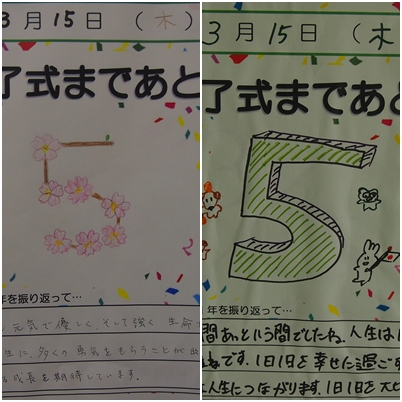 3月15日(木)
了式まであと
5
年を振り返って…
元気で優しく、そして強く 生命
生に、多くの勇気をもらうことが出
成長を期待しています。
3月15日(木
了式まであと
5
年を振り返って…
間あっという間でしたね。人生は
です。1日1日を幸せに過ご
人生につながります。1日1日を大